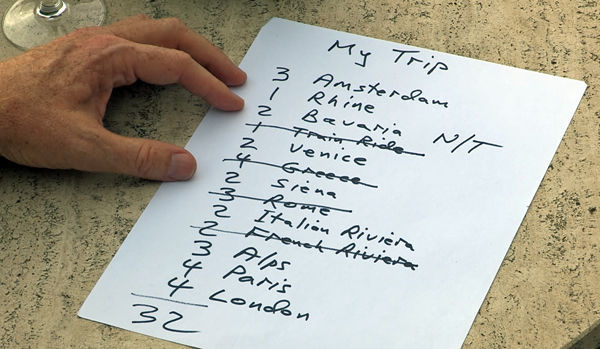 My Trip
3 Amsterdam
1 Rhine
2 Bavaria N/T
1 Train Ride
2 Venice
4 Greece
2 Siena
3 Rome
2 Italian Riviera
2 French Riviera
3 Alps
4 Paris
4 London
32